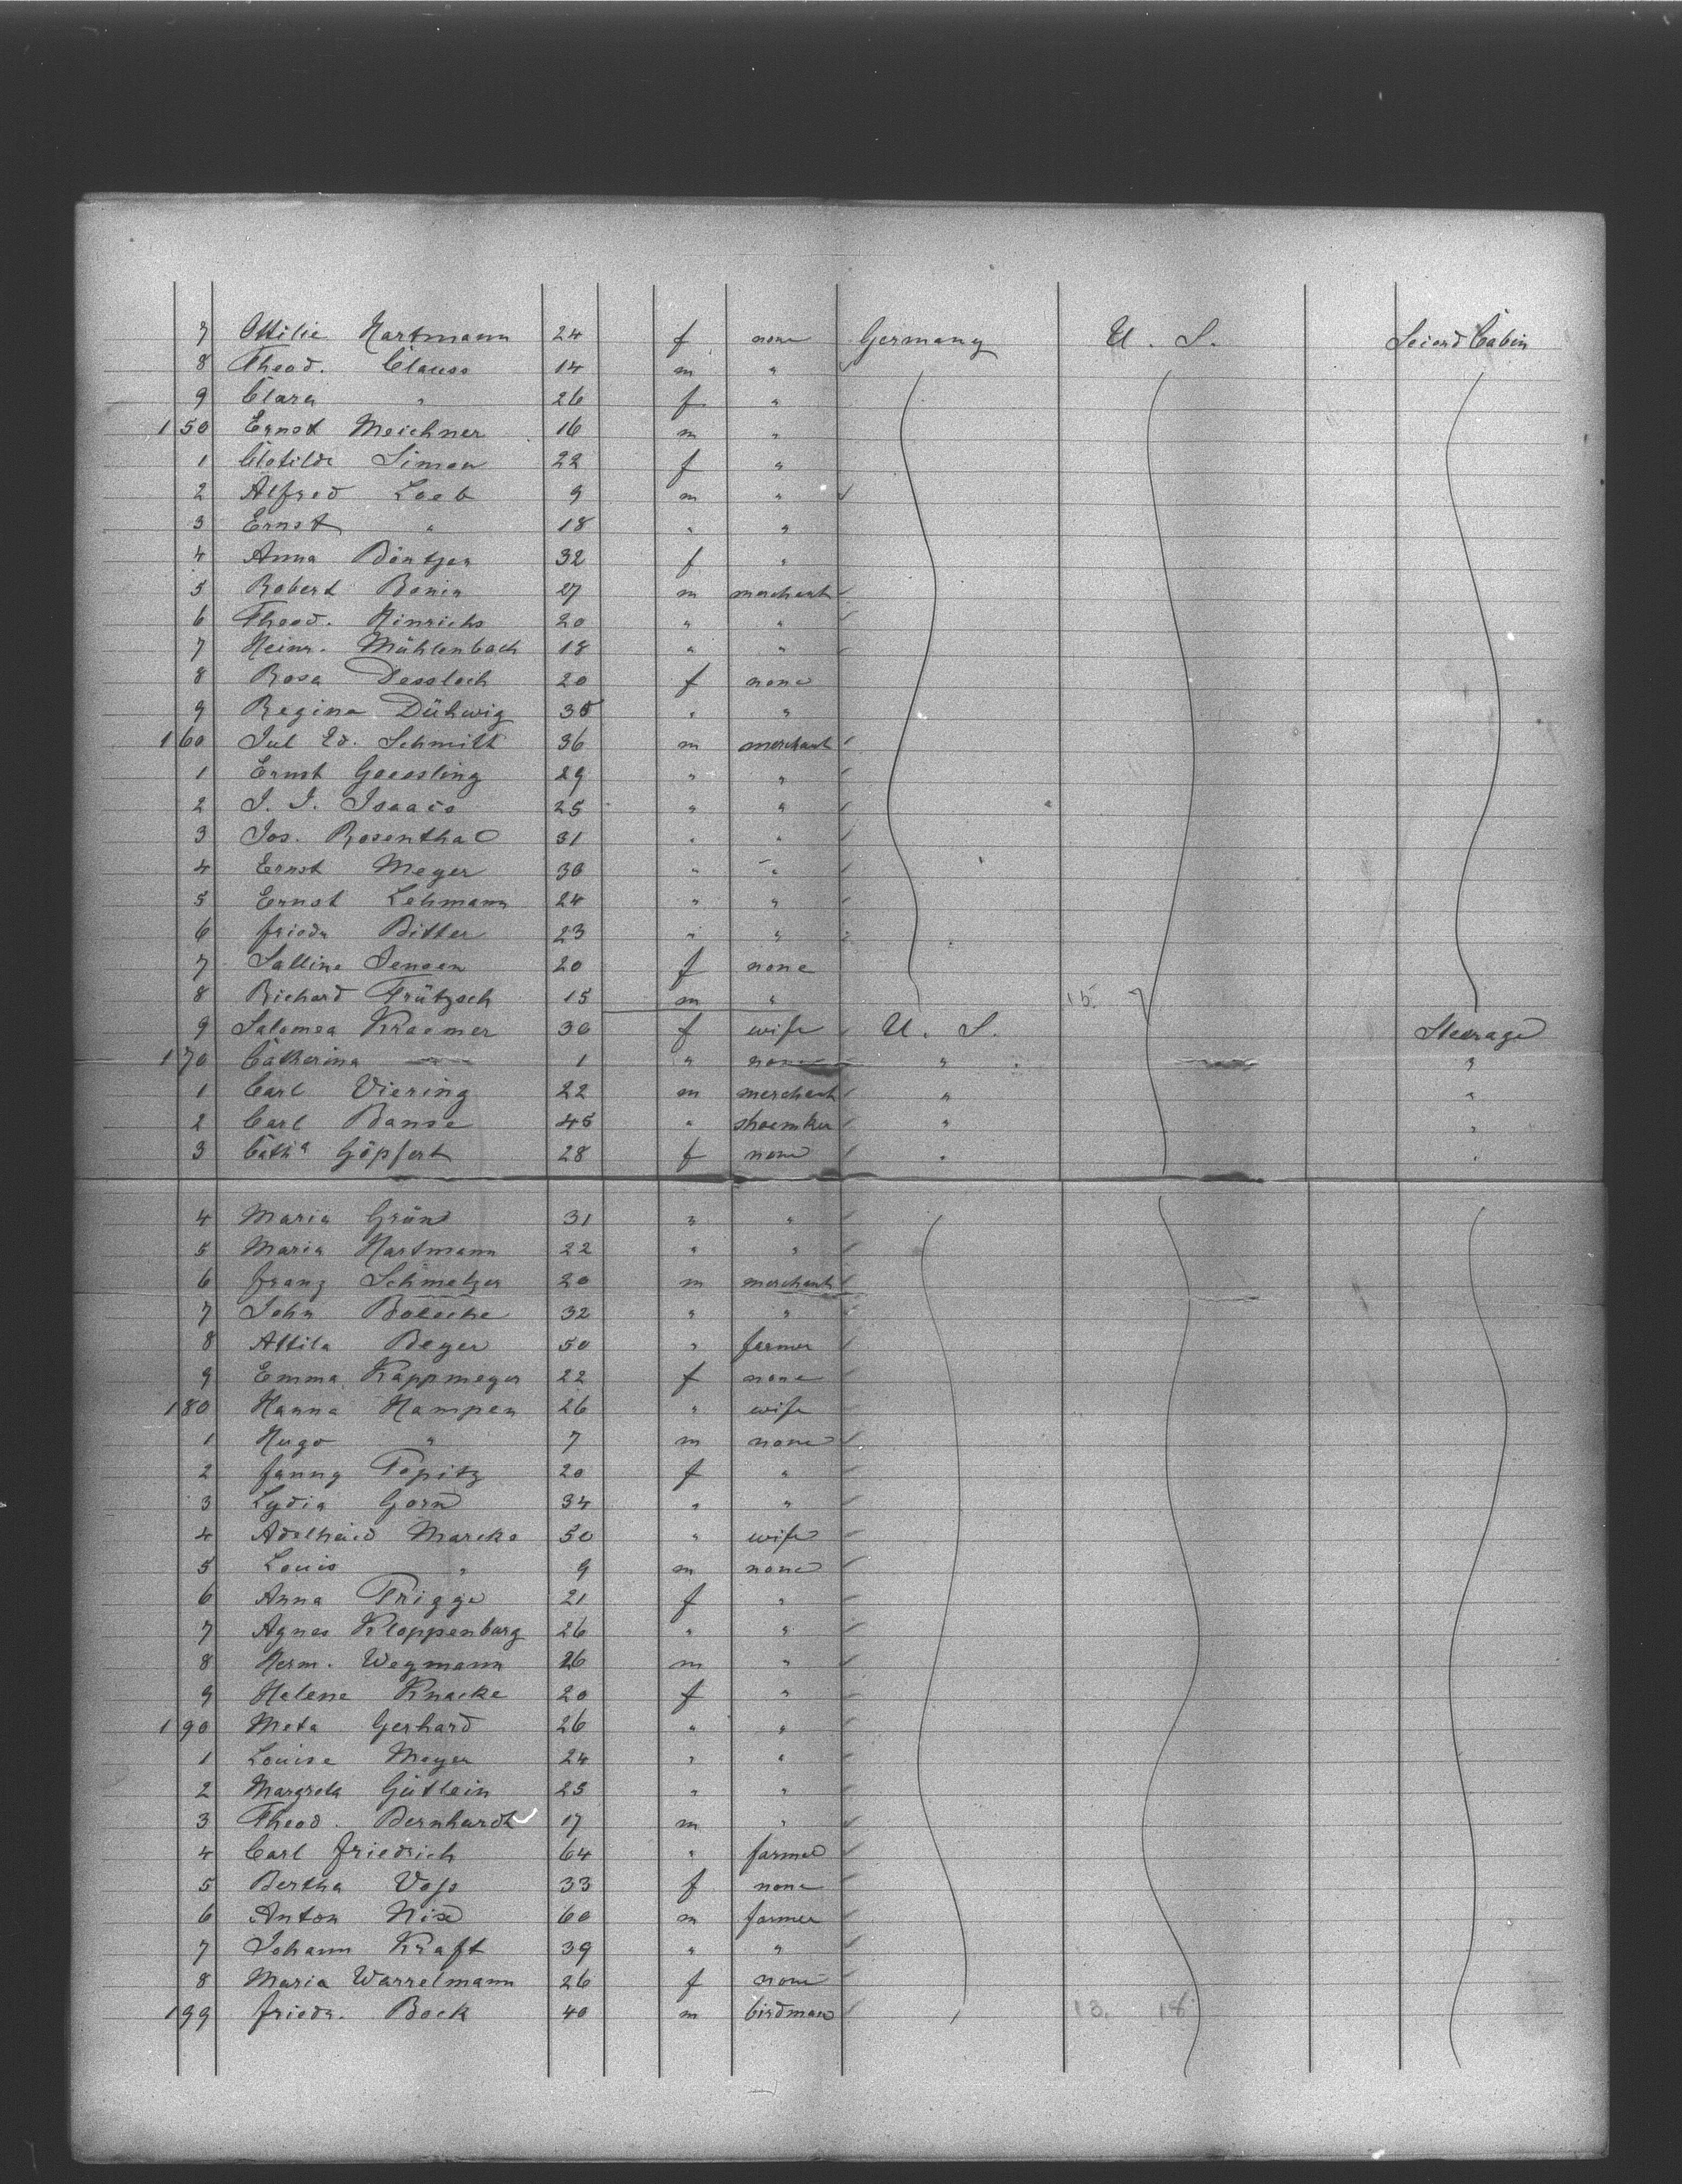 7 Ottilie Hartmann 24 f none Germany U. S. Second Cabin
8 Theod. Clauss 14 m "
9 Clara " 26 f "
150 Ernst Meichner 16 m "
1 Clotilde Simon 22 f "
2 Alfred Loeb 9 m "
3 Ernst " 18 " "
4 Anna Döntjen 32 f "
5 Robert Bonin 27 m merchant
6 Theod. Hinrichs 20 " "
7 Heinr. Mühlenbach 18 " "
8 Rosa Dessloch 20 f none
9 Regina Dühwig 35 " "
160 Jul Ed. Schmitt 36 m merchant
1 Ernst Goessling 29 " "
2 J. J. Isaacs 25 " "
3 Jos. Rosenthal 31 " "
4 Ernst Meyer 30 " "
5 Ernst Lehmann 24 " "
6 Friedr Ritter 23 " "
7 Salline Jensen 20 f none
8 Richard Frützsch 15 m " 15. 7
9 Salomea Kraemer 30 f wife U. S. Steerage
170 Catherina — 1 " none " "
1 Carl Viering 22 m merchant " "
2 Carl Banse 45 " shoemker " "
3 Cath^a Göpfert 28 f none " "
4 Maria Grün 31 " "
5 Maria Hartmann 22 " "
6 Franz Schmelzer 20 m merchant
7 John Boesche 32 " "
8 Attila Beyer 50 " farmer
9 Emma Kappmeyer 22 f none
180 Hanna Hampen 26 " wife
1 Hugo " 7 m none
2 Fanny Popitz 20 f "
3 Lydia Gorn 34 " "
4 Adelheid Marcks 50 " wife
5 Louis " 9 m none
6 Anna Prigge 21 f "
7 Agnes Kloppenburg 26 " "
8 Herm. Wegmann 26 m "
9 Helene Knacke 20 f "
190 Meta Gerhard 26 " "
1 Louise Meyer 24 " "
2 Margreta Gütlein 25 " "
3 Theod. Bernhardt 17 m "
4 Carl Friedrich 64 " farmer
5 Bertha Voss 33 f none
6 Anton Nix 60 m farmer
7 Johann Kraft 39 " "
8 Maria Warrelmann 26 f none
199 Friedr. Bock 40 m birdman 13. 18